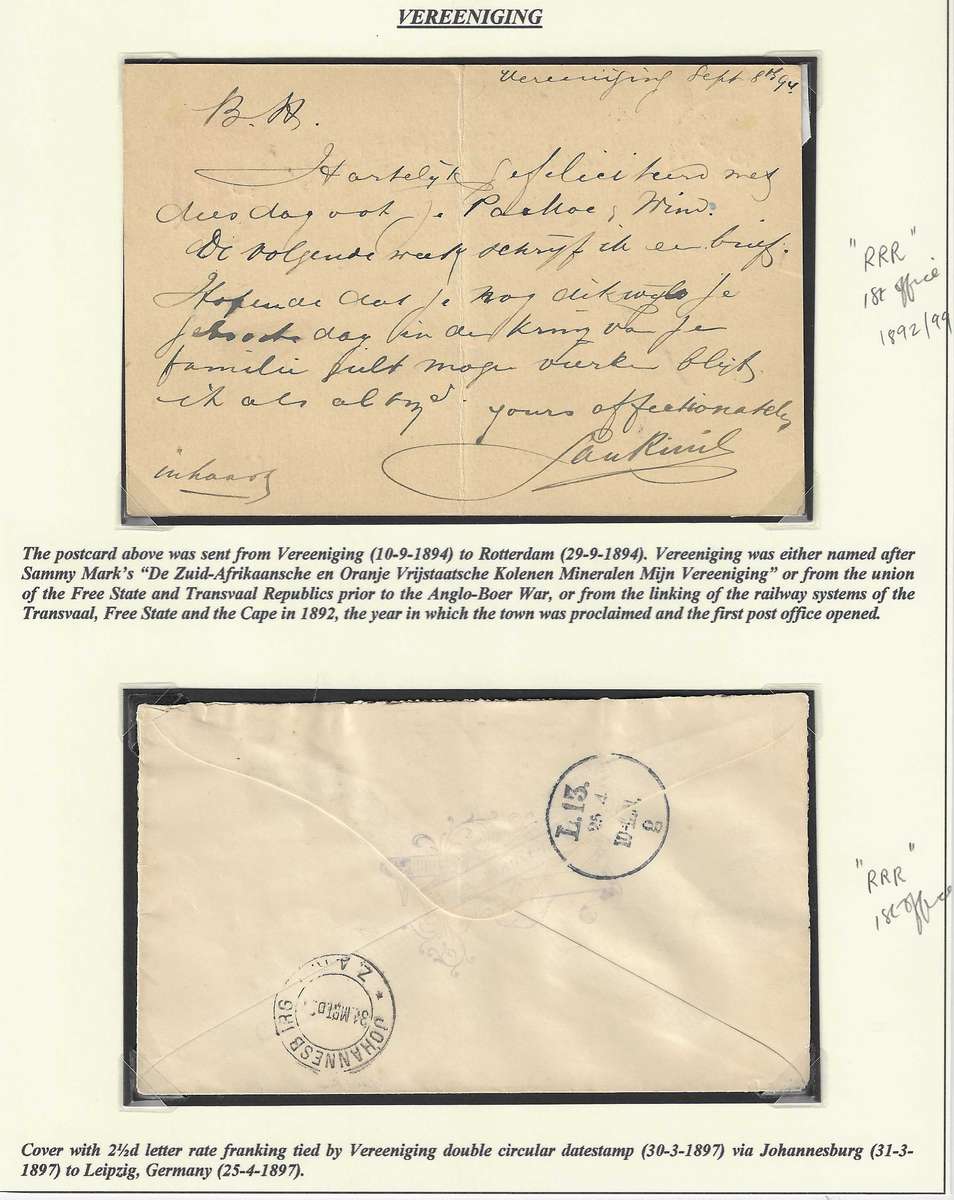 VEREENIGING
Vereeniging Sept 8th 94
B. H.
Hartelijk gefeliciteerd met
dees dag ook je Pa Moe & Wim.
De volgende week schrijf ik een brief.
Hopende dat je nog dikwyls je
geboorte dag in de kring van je
familie moge vieren blijft
ik als altyd. yours affectionately
in haast
"RRR"
1st office
1892/99
The postcard above was sent from Vereeniging (10-9-1894) to Rotterdam (29-9-1894). Vereeniging was either named after
Sammy Mark's "De Zuid-Afrikaansche en Oranje Vrijstaatsche Kolenen Mineralen Mijn Vereeniging" or from the union
of the Free State and Transvaal Republics prior to the Anglo-Boer War, or from the linking of the railway systems of the
Transvaal, Free State and the Cape in 1892, the year in which the town was proclaimed and the first post office opened.
L. 13.
25 4.
8
"RRR"
1st office
Z.A.R.
JOHANNESBURG
31.MRT.
Cover with 2½d letter rate franking tied by Vereeniging double circular datestamp (30-3-1897) via Johannesburg (31-3-
1897) to Leipzig, Germany (25-4-1897).